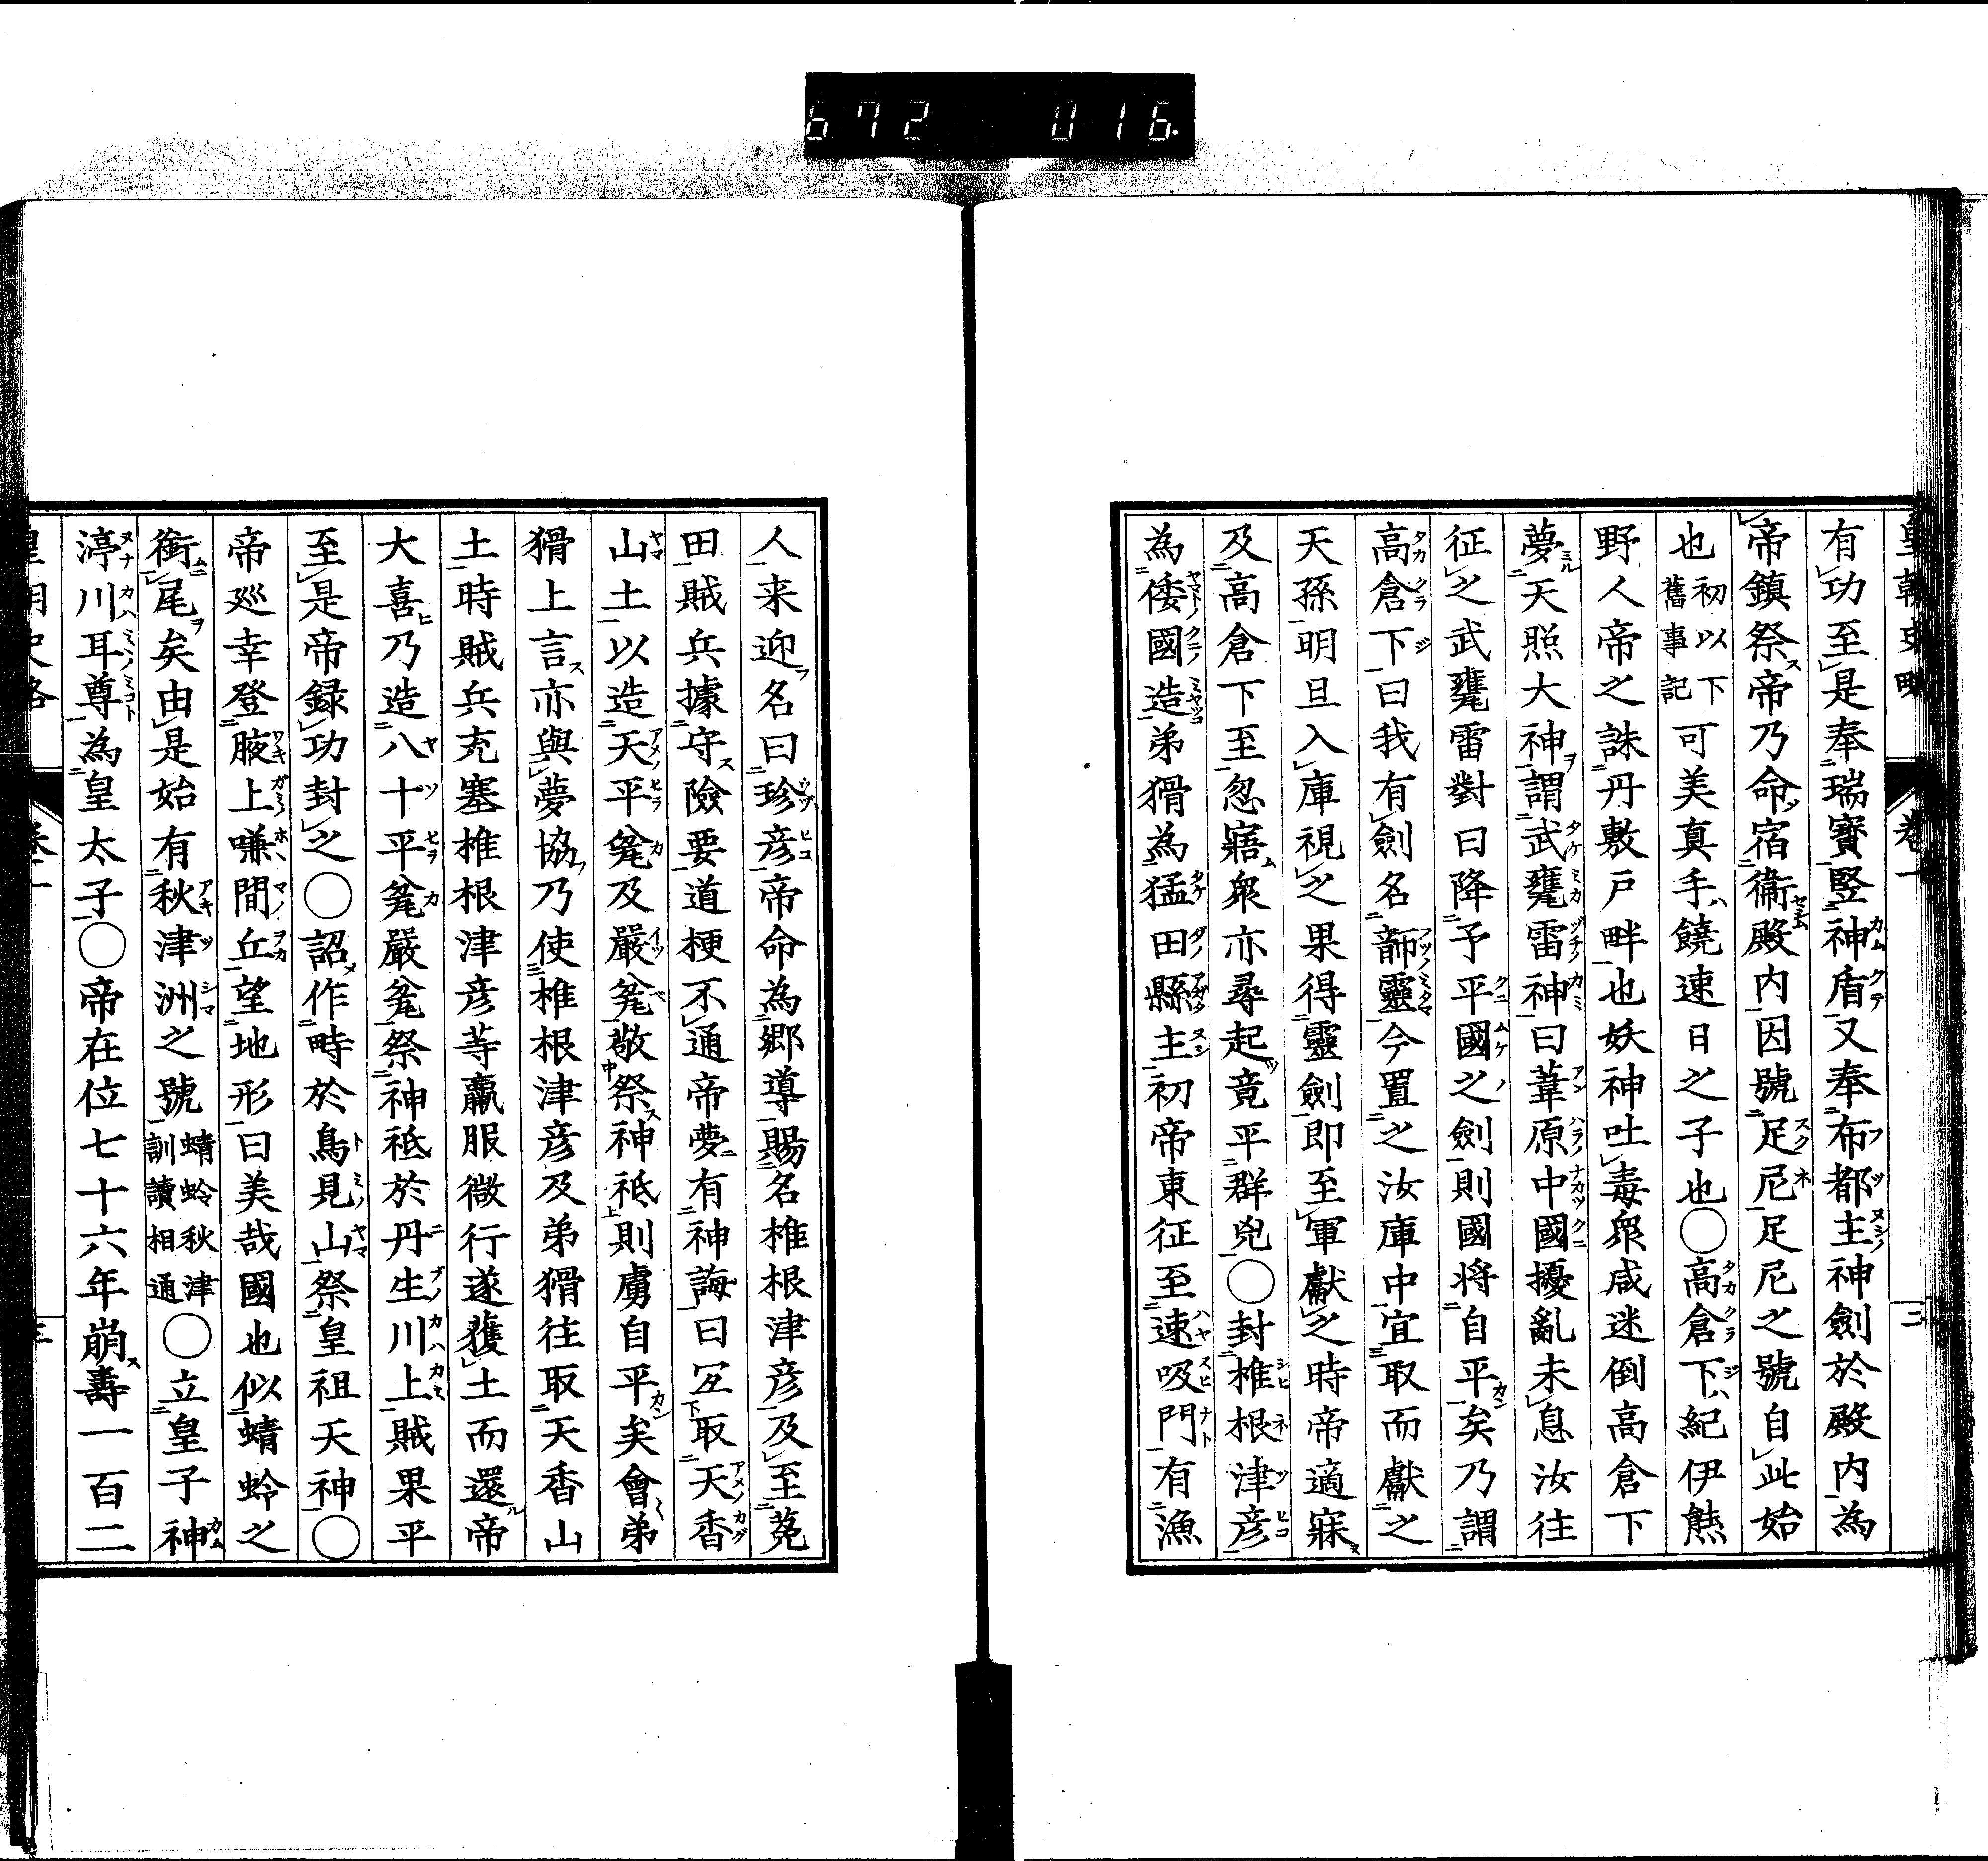 672 016.
皇朝史略 卷一 二
有功至是奉瑞寶豎神盾又奉布都主神劍於殿内為
帝鎮祭帝乃命宿衞殿内因號足尼足尼之號自此始
也初以下舊事記可美真手饒速日之子也○高倉下紀伊熊
野人帝之誅丹敷戸畔也妖神吐毒衆咸迷倒高倉下
夢天照大神謂武甕雷神曰葦原中國擾亂未息汝往
征之武甕雷對曰降予平國之劍則國将自平矣乃謂
高倉下曰我有劍名韴靈今置之汝庫中宜取而獻之
天孫明旦入庫視之果得靈劍即至軍獻之時帝適寐
及高倉下至忽寤衆亦尋起竟平群兇○封椎根津彦
為倭國造弟猾為猛田縣主初帝東征至速吸門有漁
人来迎名曰珍彦帝命為郷導賜名椎根津彦及至菟
田賊兵據守險要道梗不通帝夢有神誨曰宜取天香
山土以造天平瓮及嚴瓮敬祭神祇則虜自平矣會弟
猾上言亦與夢協乃使椎根津彦及弟猾往取天香山
土時賊兵充塞椎根津彦等羸服微行遂獲土而還帝
大喜乃造八十平瓮嚴瓮祭神祇於丹生川上賊果平
至是帝録功封之○詔作畤於鳥見山祭皇祖天神○
帝巡幸登腋上嗛間丘望地形曰美哉國也似蜻蛉之
銜尾矣由是始有秋津洲之號蜻蛉秋津訓讀相通○立皇子神
渟川耳尊為皇太子○帝在位七十六年崩壽一百二
皇朝史略 卷一 三